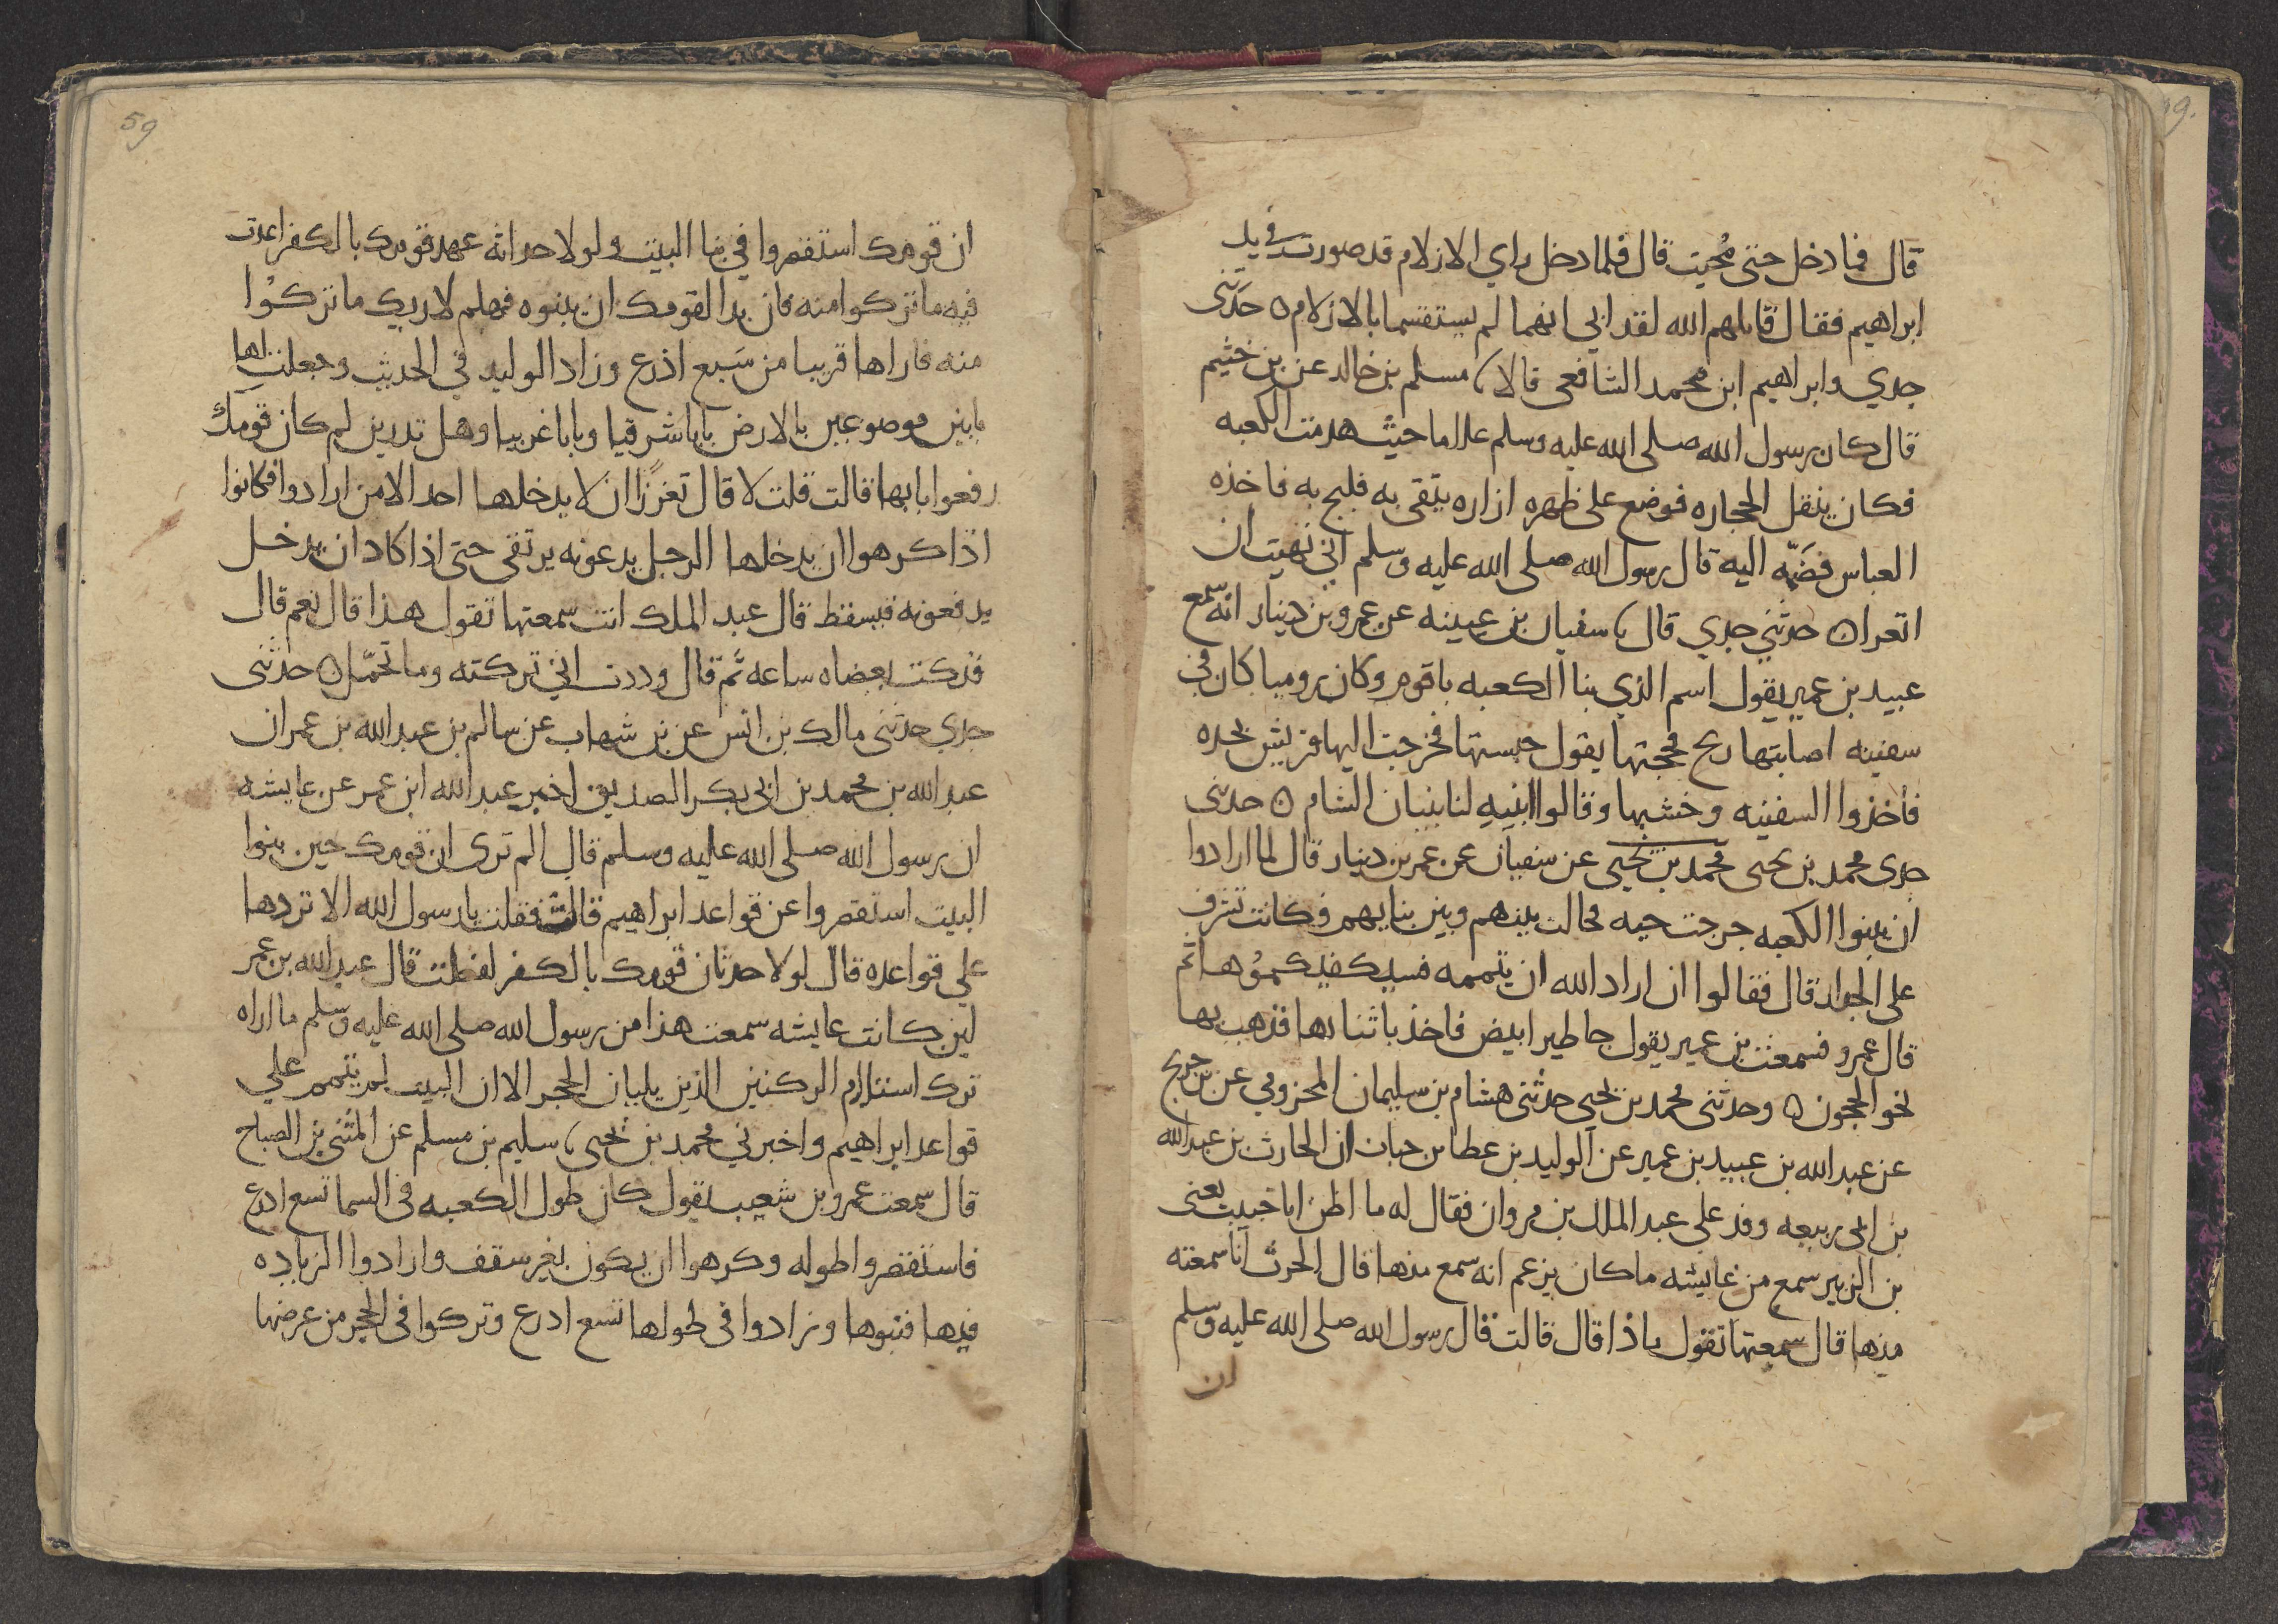 قال فما دخل حتى مُحيت قال فلما دخل راي الازلام قد صورت في يد
ابراهيم فقال قاتلهم الله لقد ابي انهما لم يستقسما بالازلام ۝ حدثنى
جدي وابراهيم ابن محمد الشافعى قالا مسلم بن خالد عن بن خثيم
قال كان رسول الله صلى الله عليه وسلم غلاما حيث هدمت الكعبه
فكان ينقل الحجاره فوضع على ظهره ازاره يتقى به فلبج به فاخذه
العباس فضَمّه اليه قال رسول الله صلى الله عليه وسلم اني نهيت ان
اتعرا ۝ حدثني جدي قال سفيان بن عيينه عن عمرو بن دينار انه سمع
عبيد بن عمير يقول اسم الذي بنا الكعبه باقوم وكان روميا كان في
سفينه اصابتها ريح فحجتها يقول حبستها فخرجت اليها قريش بجده
فاخذوا السفينه وخشبها وقالوا ابنيه لنا بنيان الشام ۝ حدثنى
جدى محمد بن يحيى محمد بن يحيى عن سفيان عن عمر بن دينار قال لما ارادوا
ان يبنوا الكعبه خرجت حيه فحالت بينهم وبين بنايهم وكانت تشرف
على الجدار قال فقالوا ان اراد الله ان يتممه فسيكفيكموُها ثم
قال عمرو فسمعت بن عمير يقول جا طير ابيض فاخذ باثنابها فذهب بها
نحو الحجون ۝ وحدثنى محمد بن يحيى حدثنى هشام بن سليمان المخزومي عن بن جريج
عن عبد الله بن عبيد بن عمير عن الوليد بن عطا بن حبان ان الحارث بن عبد الله
بن ابي ربيعه وفد على عبد الملك بن مروان فقال له ما اظن ابا خبيب يعنى
بن الزبير سمع من عايشه ما كان يزعم انه سمع منها قال الحرث انا سمعته
منها قال سمعتها تقول ماذا قال قالت قال رسول الله صلى الله عليه وسلم
ان
59
ان قومك استقصروا في بنا البيت ولولا حداثه عهد قومك بالكفر اعدت
فيه ما تركوا منه فان بدا لقومك ان يبنوه فهلم لاريك ما تركوُا
منه فاراها قريبا من سَبع اذرع وزاد الوليد في الحديث وجعلت لها
بابين موضوعين بالارض بابا شرقيا وبابا غربيا وهل تدرين لم كان قومك
رفعوا بابها قالت قلت لا قال تعززًا ان لا يدخلها احد الا من ارادوا فكانوا
اذا كرهوا ان يدخلها الرجل يدعونه يرتقى حتى اذا كاد ان يدخل
يدفعونه فيسقط قال عبد الملك انت سمعتها تقول هذا قال نعم قال
فنكت بعصاه ساعه ثم قال وددت اني تركته وما تحمّل ۝ حدثنى
جدي حدثنى مالك بن انس عن بن شهاب عن سالم بن عبد الله بن عمر ان
عبد الله بن محمد بن ابي بكر الصديق اخبر عبد الله ابن عمر عن عايشه
ان رسول الله صلى الله عليه وسلم قال الم ترى ان قومك حين بنوا
البيت استقصروا عن قواعد ابراهيم قالت فقلت يا رسول الله الا تردها
على قواعده قال لولا حدثان قومك بالكفر لفعلت قال عبد الله بن عمر
لين كانت عايشه سمعت هذا من رسول الله صلى الله عليه وسلم ما اراه
ترك استلام الركنين الذين يليان الحجر الا ان البيت لم يتمم على
قواعد ابراهيم واخبرني محمد بن يحيى سليم بن مسلم عن المثنى بن الصباح
قال سمعت عمرو بن شعيب يقول كان طول الكعبه في السما تسع اذرع
فاستقصروا طوله وكرهوا ان يكون بغير سقف وارادوا الزياده
فيها فبنوها وزادوا في طولها تسع اذرع وتركوا في الحجر من عرضها